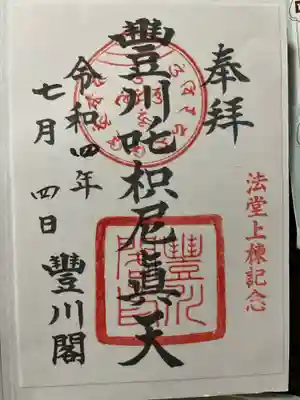 奉拝
法堂上棟記念
豐川吒枳尼眞天
令和四年
七月四日
豐川閣